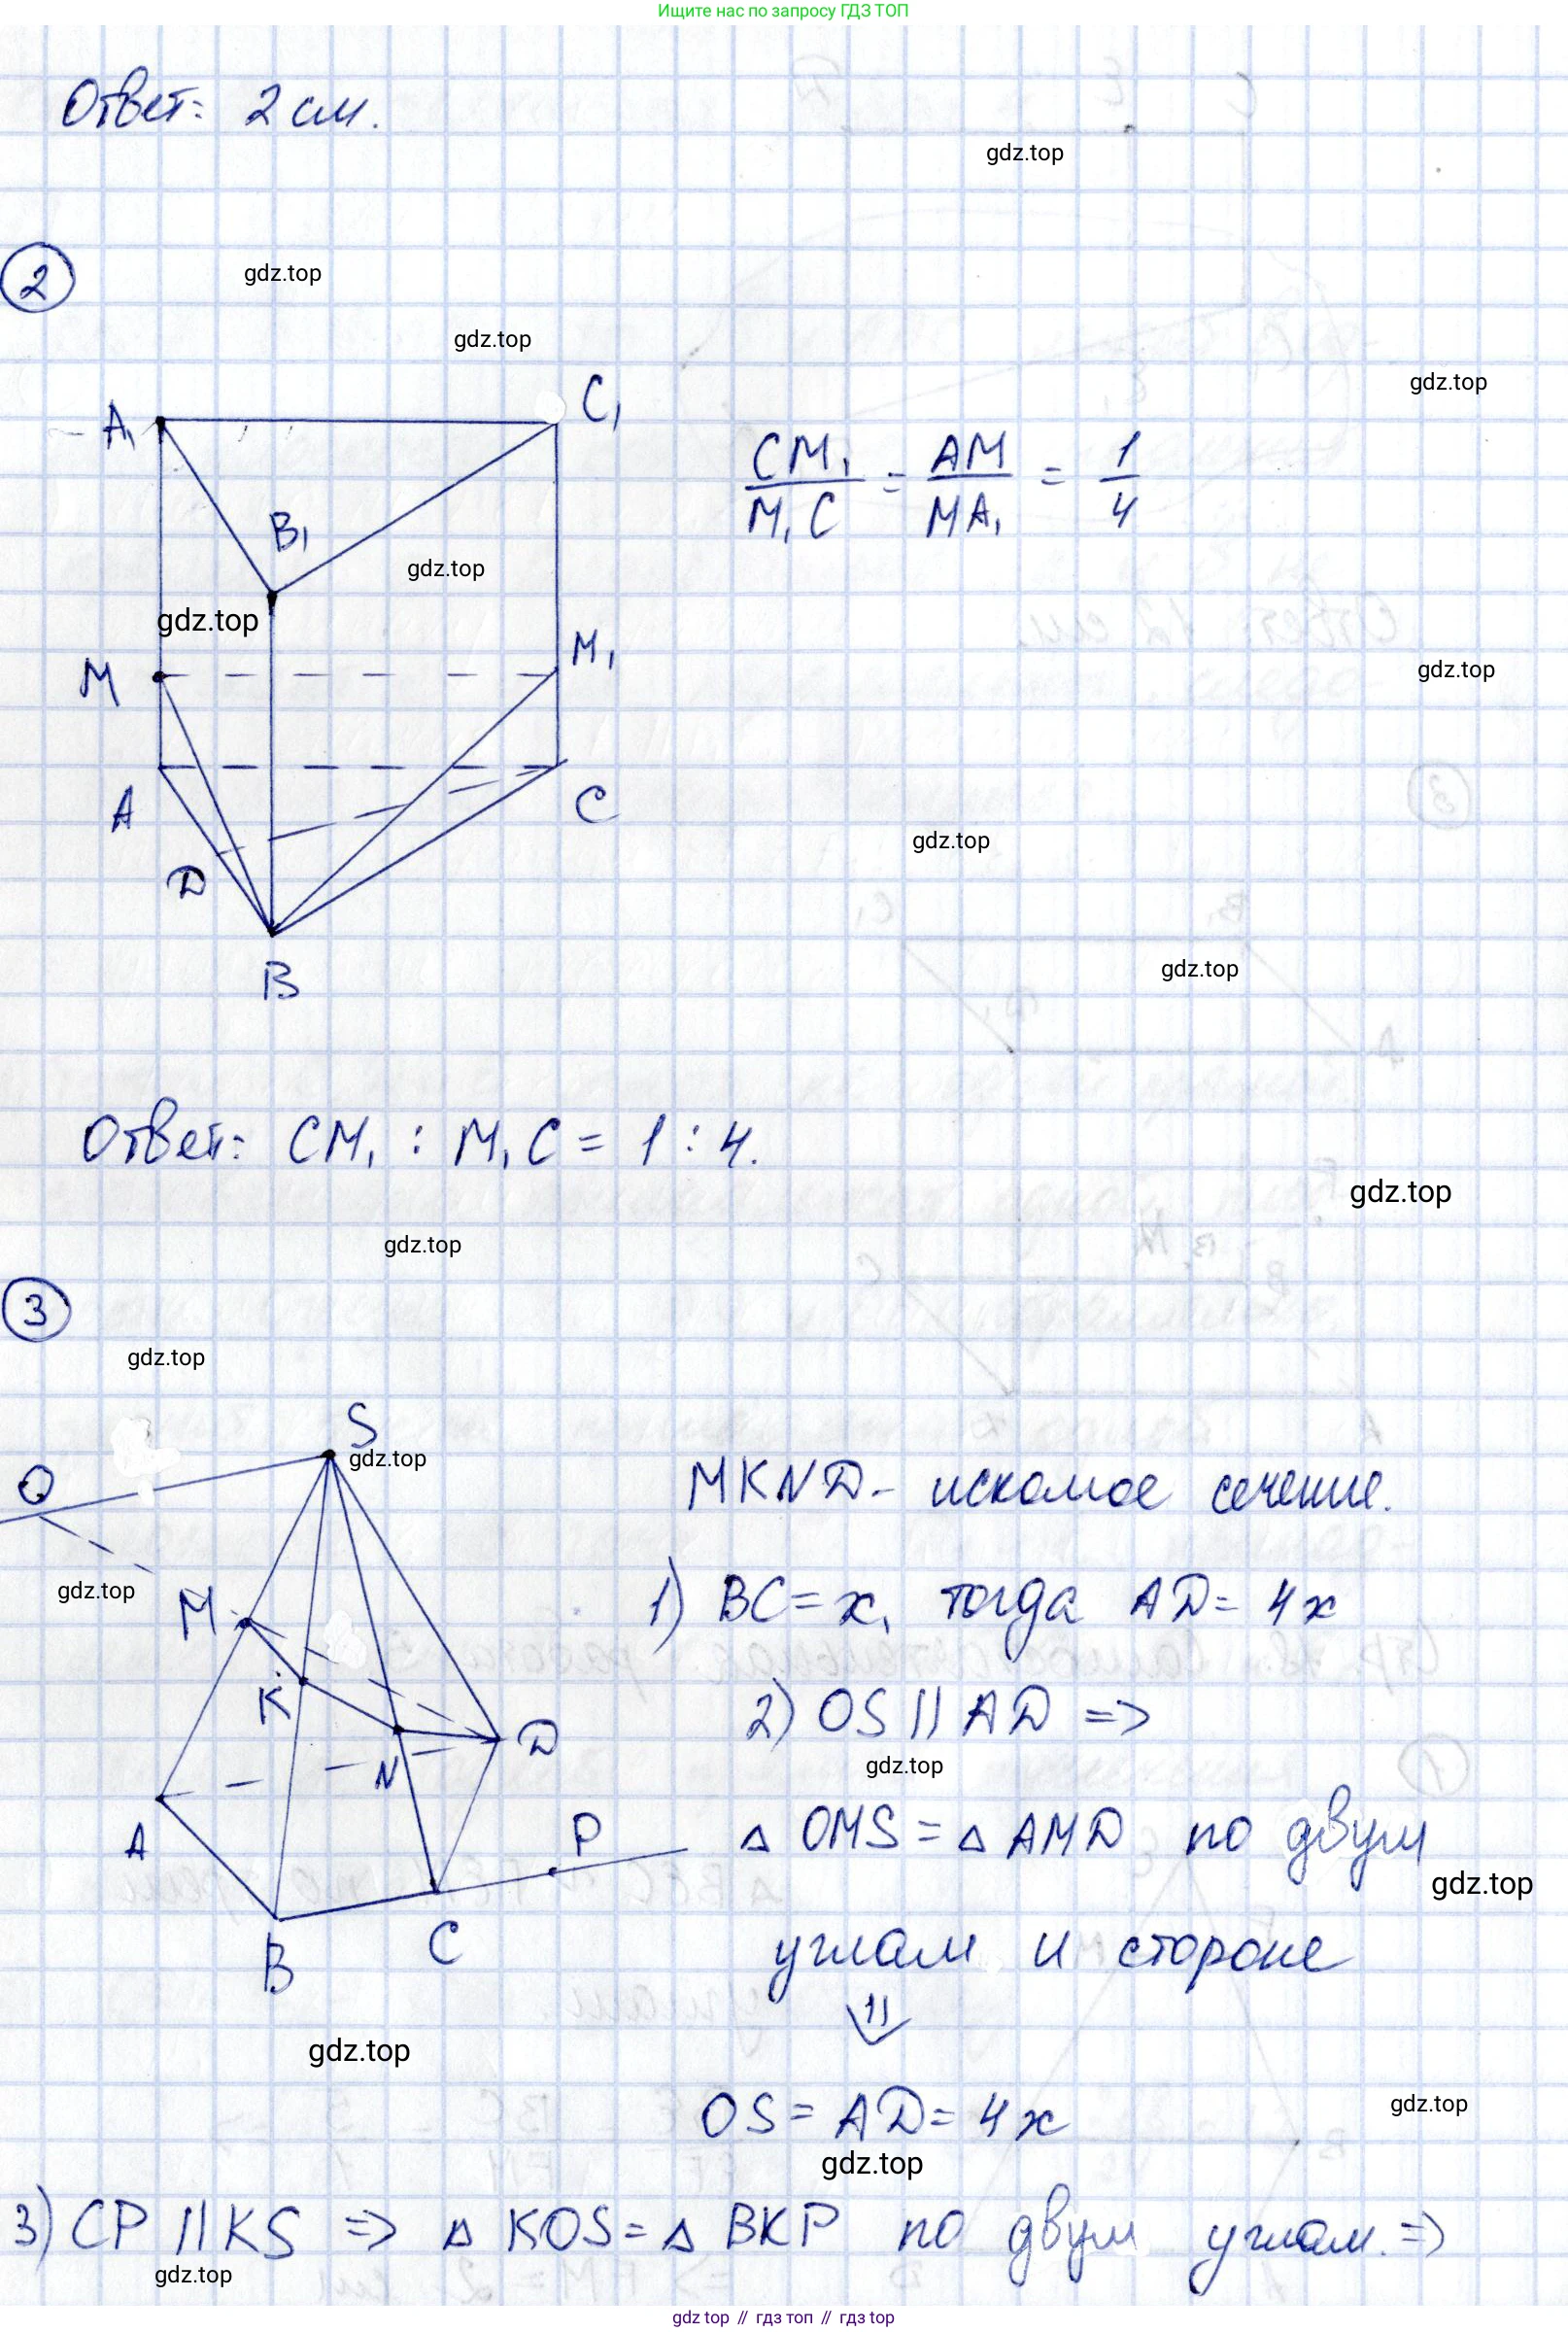 Ищите нас по запросу ГДЗ ТОП
Ответ: 2 см.
gdz.top
2
gdz.top
gdz.top
gdz.top
A₁ C₁
CM₁/M₁C = AM/MA₁ = 1/4
B₁
gdz.top
gdz.top
M M₁
gdz.top
A C
gdz.top
D
B
gdz.top
Ответ: CM₁ : M₁C = 1 : 4.
gdz.top
gdz.top
3
gdz.top
S
gdz.top
O
MKND - искомое сечение.
gdz.top
M
1) BC = x, тогда AD = 4x
K
2) OS || AD =>
D
gdz.top
N
A
P
△ OMS = △ AMD по двум
gdz.top
C
B
углам и стороне
⇓
gdz.top
OS = AD = 4x
gdz.top
gdz.top
3) CP || KS => △ KOS = △ BKP по двум углам. =>
gdz.top
gdz top // гдз топ // гдз top